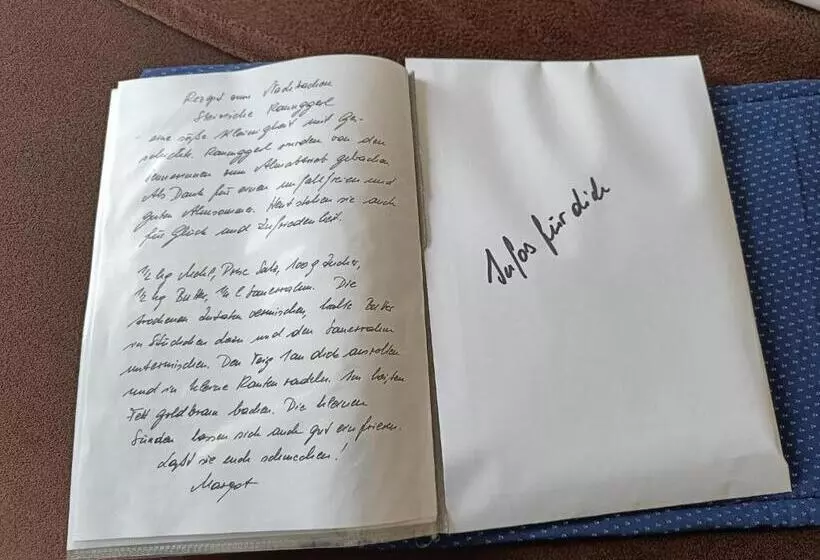 Rezept zum Nachkochen
Steirische Raunggerl
- eine süße Kleinigkeit mit Ge-
schichte. Raunggerl wurden von den
Sennerinnen zum Almabtrieb gebacken
Als Dank für einen unfallfreien und
guten Almsommer. Heut stehen sie auch
für Glück und Zufriedenheit.
½ kg Mehl, Prise Salz, 100 g Zucker,
¼ kg Butter, ¼ l Sauerrahm. Die
trockenen Zutaten vermischen, kalte Butter
in Stückchen dazu und den Sauerrahm
untermischen. Den Teig 1 cm dick ausrollen
und in kleine Rauten radeln. Im heißen
Fett goldbraun backen. Die kleinen
Sünden lassen sich auch gut einfrieren.
Laßt sie euch schmecken!
Margot
Infos für dich